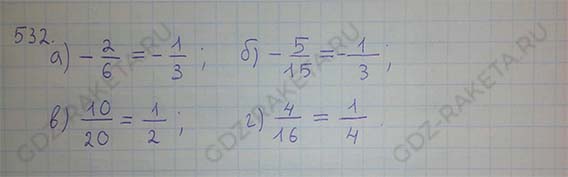 532.
а) - 2/6 = - 1/3 ; б) - 5/15 = - 1/3 ;
в) 10/20 = 1/2 ; г) 4/16 = 1/4
GDZ-RAKETA.RU
GDZ-RAKETA.RU
GDZ-RAKETA.RU
GDZ-RAKETA.RU